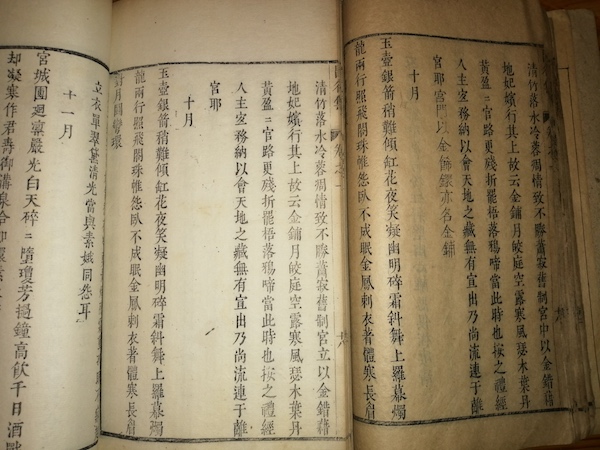 清竹落水冷蓉凋情致不勝蕭寂舊制宮中以金錯藉
地妃嬪行其上故云金鋪月皎庭空露寒風瑟木葉丹
黃盈〻官路更殘折罷梧落鴉啼當此時也按之禮經
人主宜務納以會天地之藏無有宣出乃尚流連于離
宮耶宮門以金飾鐶亦名金鋪
十月
玉壺銀箭稍難傾缸花夜笑凝幽明碎霜斜舞上羅幕燭
龍兩行照飛閣珠帷怨臥不成眠金鳳刺衣著體寒長眉
清竹落水冷蓉凋情致不勝蕭寂舊制宮立以金錯藉
地妃嬪行其上故云金鋪月皎庭空露寒風瑟木葉丹
黃盈〻官路更殘折罷梧落鴉啼當此時也按之禮經
人主宜務納以會天地之藏無有宣出乃尚流連于離
宮耶
十月
玉壺銀箭稍難傾缸花夜笑凝幽明碎霜斜舞上羅幕燭
龍兩行照飛閣珠帷怨臥不成眠金鳳刺衣著體寒長眉
對月鬭彎環
立衣單翠葛清光當與素娥同怨耳
十一月
宮城團迴凜嚴光白天碎〻墮瓊芳撾鐘高飲千日酒
却凝寒作君壽御溝泉合如環素